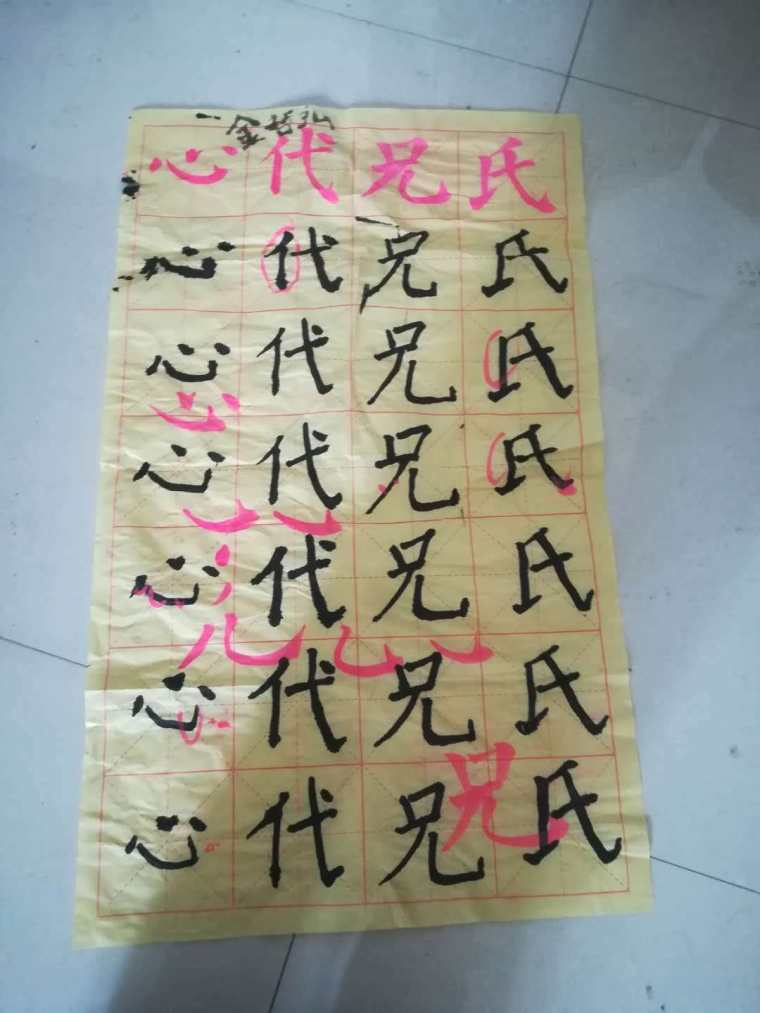 金哲弘
心代兄氏
心代兄氏
心代兄氏
心代兄氏
心代兄氏
心代兄氏
心代兄氏
心
兄